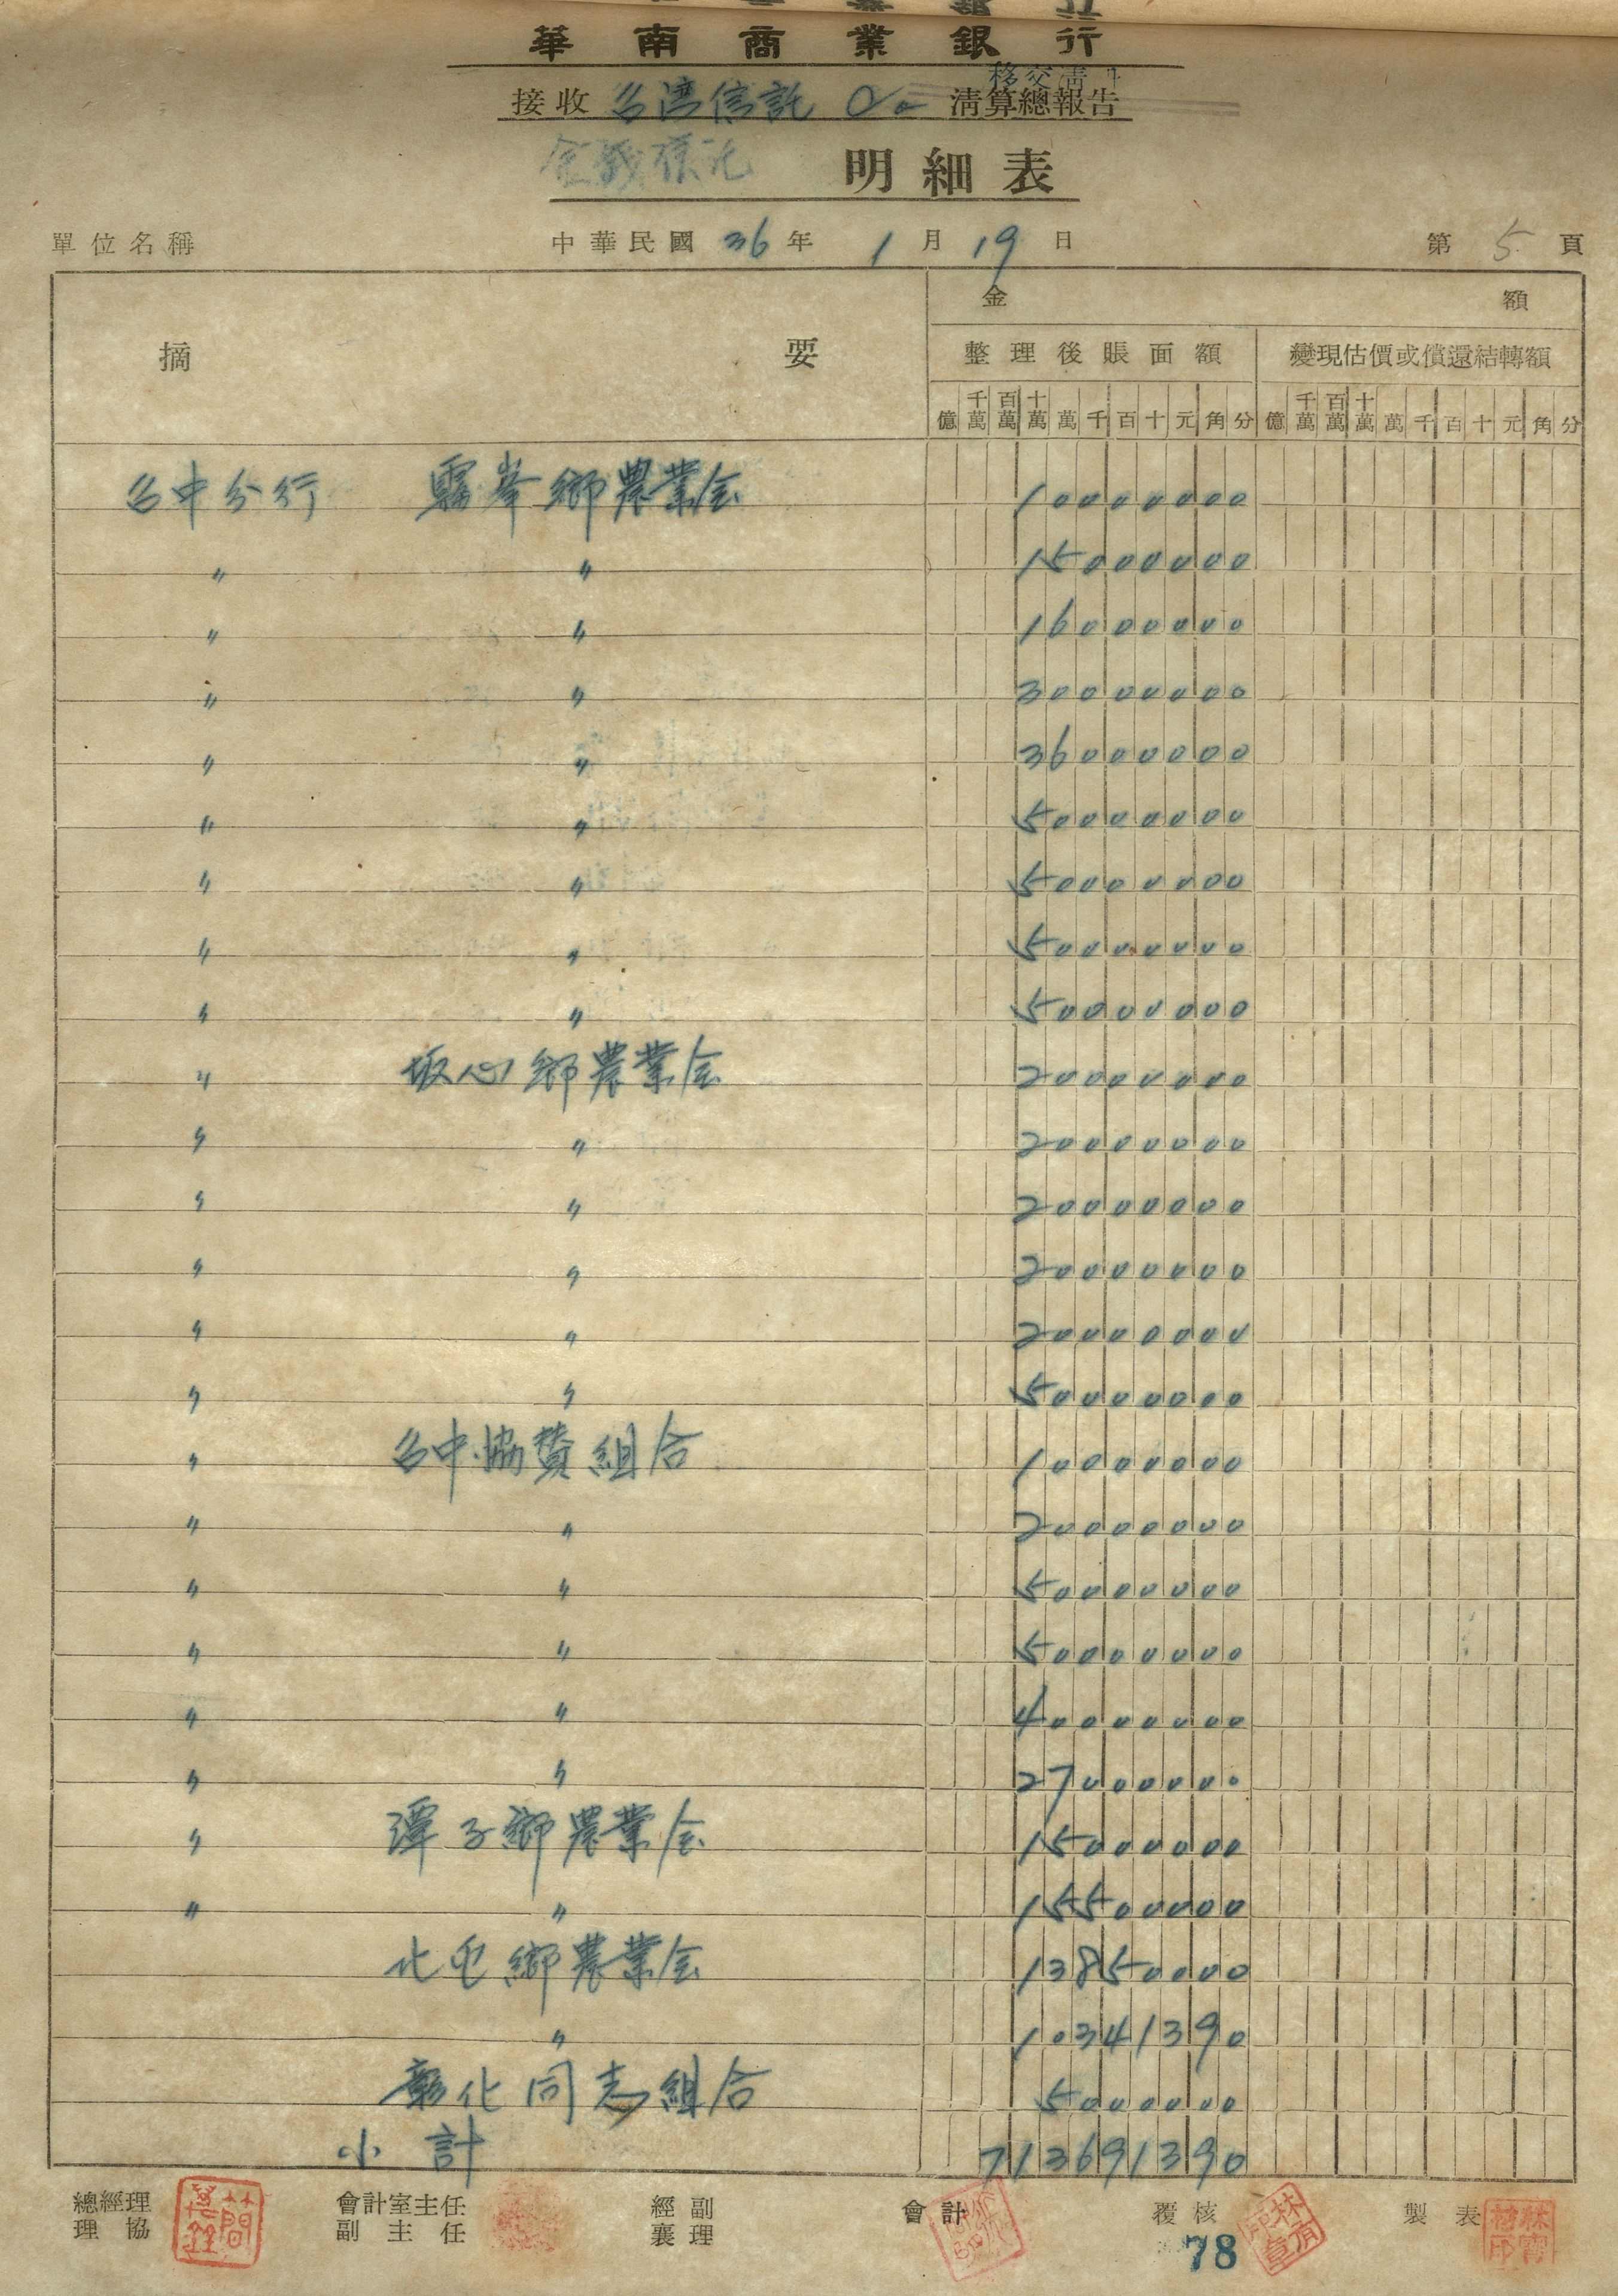 華南商業銀行
移交清
接收 台湾信託 清算總報告
金銭信託 明細表
單位名稱 中華民國 36 年 1 月 19 日 第 5 頁
摘要 金額
整理後賬面額 變現估價或償還結轉額
億 千萬 百萬 十萬 萬 千 百 十 元 角 分 億 千萬 百萬 十萬 萬 千 百 十 元 角 分
台中分行 霧峯鄉農業会 10000000
〃 〃 15000000
〃 〃 16000000
〃 〃 30000000
〃 〃 36000000
〃 〃 50000000
〃 〃 50000000
〃 〃 50000000
〃 〃 50000000
〃 坂心鄉農業会 20000000
〃 〃 20000000
〃 〃 20000000
〃 〃 20000000
〃 〃 20000000
〃 〃 50000000
〃 台中協賛組合 10000000
〃 〃 20000000
〃 〃 50000000
〃 〃 50000000
〃 〃 40000000
〃 〃 27000000
〃 潭子鄉農業会 15000000
〃 〃 15500000
北屯鄉農業会 13850000
〃 10341390
彰化同志組合 5000000
小計 713691390
總經理 協理 會計室主任 副主任 經副襄理 會計 覆核 製表
78